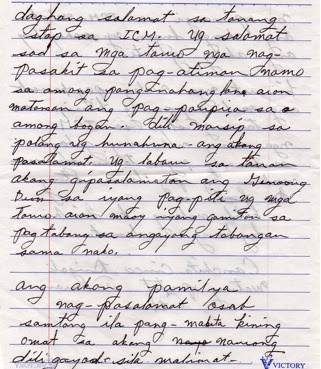 daghang salamat sa tanang
stap sa ICM. Ug salamat
sad sa mga tawo nga nag-
pasakit sa pag-atiman namo
sa among panginahanglan aron
matarson ang pag-panpira sa
among bogan. dili maisip sa
polong ug hunahuna - ang akong
pasalamat ug labaw sa tanan
akang gipasalamatan ang Ginoong
Dios sa iyang Pag-pili ug mga
tawo aron maoy iyang gamiton sa
pag tabang sa angayang tabangan
sama nako.
ang akong pamilya
nag-pasalamat osab
samtang ila pang-makita kining
omat sa akong nawong
dili gayod sila malimat-
VICTORY
VICTORY